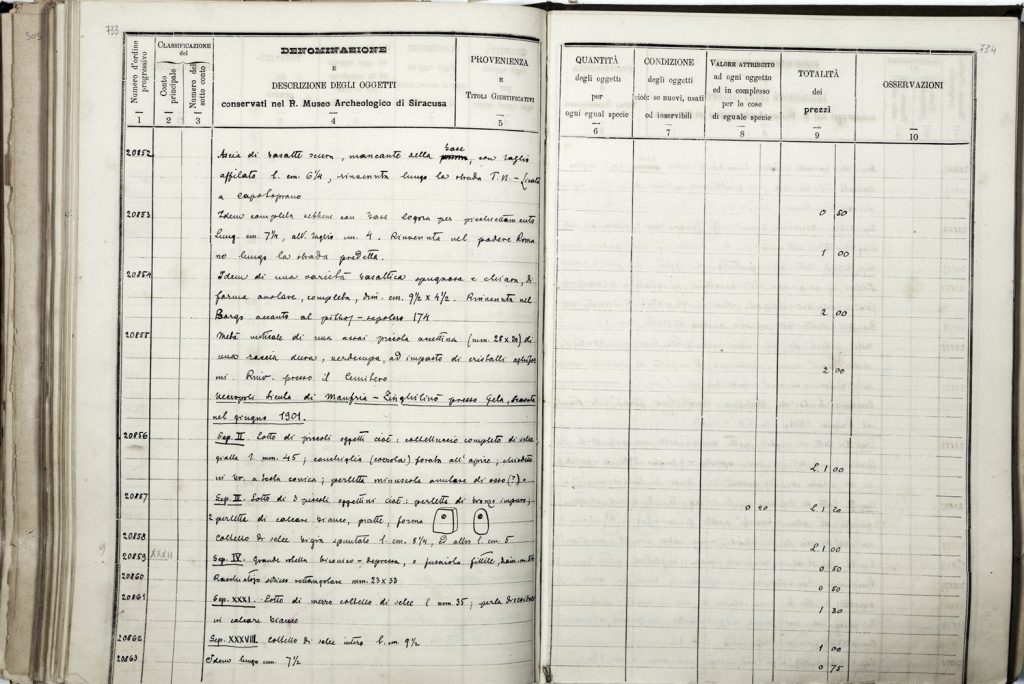 503
733
734
Numero d'ordine progressivo
CLASSIFICAZIONE
del
Conto principale
Numero del sotto conto
DENOMINAZIONE
E
DESCRIZIONE DEGLI OGGETTI
conservati nel R. Museo Archeologico di Siracusa
PROVENIENZA
E
TITOLI GIUSTIFICATIVI
1 2 3 4 5
QUANTITÀ
degli oggetti
per
ogni egual specie
CONDIZIONE
degli oggetti
cioè: se nuovi, usati
od inservibili
VALORE ATTRIBUITO
ad ogni oggetto
ed in complesso
per le cose
di eguale specie
TOTALITÀ
dei
prezzi
OSSERVAZIONI
6 7 8 9 10
20852 Ascia di basalte scura, mancante della base, con taglio
affilato l. cm. 6 1/4, rinvenuta lungo la strada T. N. - Licata
a Caposoprano
0 50
20853 Idem completa sebbene con base logora per picchiettamento
lung. cm. 7 1/4, all. taglio cm. 4. Rinvenuta nel podere Roma
no lungo la strada predetta.
1 00
20854 Idem di una varietà basaltica spugnosa e chiara, di
forma ovolare, completa, dim. cm. 9 1/2 x 4 1/2. Rinvenuta nel
Borgo accanto al pithos - sepolcro 174
2 00
20855 Metà verticale di una assai piccola accettina (mm. 28 x 20) di
una roccia dura, verdecupa, ad impasto di cristalli aghifor
mi. Rinv. presso il Cimitero
2 00
Necropoli Sicula di Manfria - presso Gela, scavata
nel giugno 1901.
20856 Sep. II. Lotto di piccoli oggetti cioè: coltelluccio completo di selce
gialla l. mm. 45, conchiglia (cozzola) forata all'apice;
in br. a testa conica; perletta minuscola anulare di osso (?).
L. 1 00
20857 Sep. III. Lotto di 3 piccoli oggettini cioè: perletta di bronzo impuro;
2 perlette di calcare bianco, piatte, forma
0 40 L. 1 20
20858 Coltello di selce bigia spuntato l. cm. 8 1/4, ed altro l. cm. 5
L. 1 00
20859 XXXII Sep. IV. Grande rotella biconico-depressa, o fusaiola fittile, diam. mm.
0 50
20860 rettangolare mm. 23 x 33
0 50
20861 Sep. XXXI. Lotto di mezzo coltello di selce l. mm. 35; perla discoidale
in calcare bianco
1 30
20862 Sep. XXXVIII. Coltello di selce intero l. cm. 9 1/2
1 00
20863 Idem lungo cm. 7 1/2
0 75